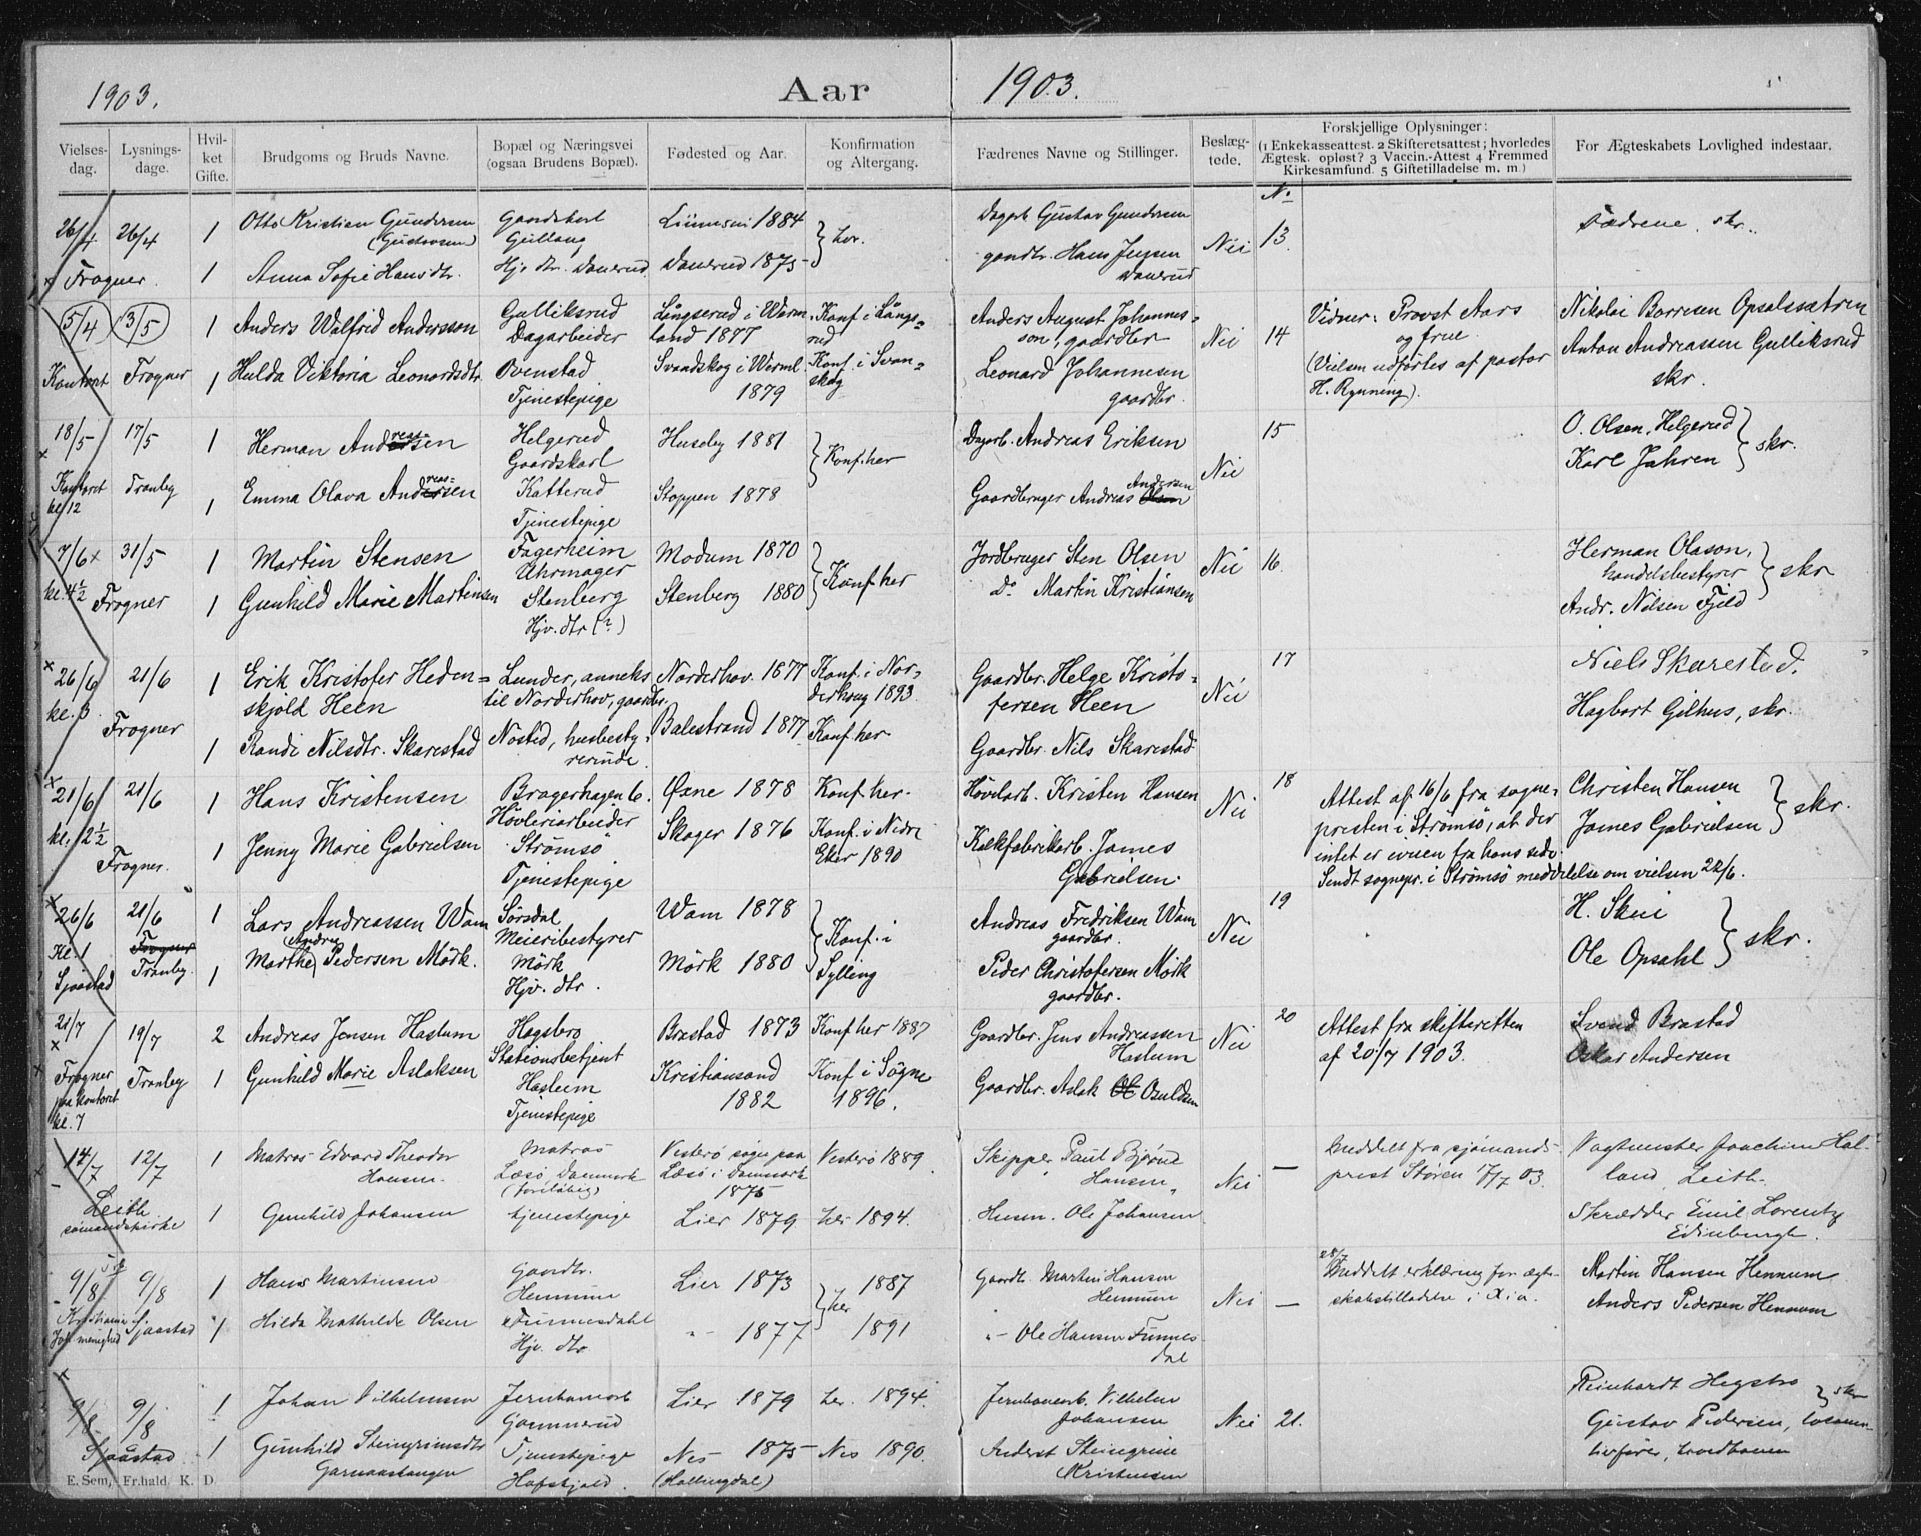 1903. Aar 1903.
Vielses-dag. Lysnings-dage. Hvil-ket Gifte. Brudgoms og Bruds Navne. Bopæl og Næringsvei (ogsaa Brudens Bopæl). Fødested og Aar. Konfirmation og Altergang. Fædrenes Navne og Stillinger. Beslæg-tede. Forskjellige Oplysninger: (1 Enkekasseattest. 2 Skifteretsattest; hvorledes Ægtesk. opløst? 3 Vaccin.-Attest 4 Fremmed Kirkesamfund. 5 Giftetilladelse m. m.) For Ægteskabets Lovlighed indestaar.
No
26/4 26/4 1 Otto Kristian Gundersen Gaardskarl 1884 Dagarb. Gustav Gundersen Nei 13. Fædrene skr.
(Gustavsen) Gullaug her.
x Frogner. 1 Anna Sofie Hansdtr. Hjv. dtr. Danerud Danerud 1875 gaardbr. Hans Jensen
Danerud
5/4 3/5 1 Anders Walfrid Andersson Gulliksrud Långserud i Werm- Konf. i Långs= Anders August Johannes= Nei 14 Vidner: Provst Aars Nikolai Borresen Opsalssætren
Dagarbeider land 1877 rud son, gaardbr og frue Anton Andreassen Gulliksrud
Kontoret Frogner 1 Hulda Viktoria Leonardsdtr. Ovenstad Svandskog i Werml. Konf. i Svan= Leonard Johannesen (Vielsen udførtes af pastor skr.
Tjenestepige 1879 skog gaardbr. H. Rynning).
18/5 17/5 1 Herman Andreassen Helgerud Huseby 1881 Konf. her Dagarb. Andreas Eriksen Nei 15 O. Olsen, Helgerud skr.
x Gaardskarl Karl Jahren
Kontoret Tranby 1 Emma Olava Andreassen Katterud Stoppen 1878 Gaardbruger Andreas Olsen Andersen
kl. 12 Tjenestepige
7/6 x 31/5 1 Martin Stensen Fagerheim Modum 1870 Konf. her Jordbruger Sten Olsen Nei 16. Herman Olason, skr
Uhrmager handelsbestyrer
kl. 4½ Frogner 1 Gunhild Marie Martinsen Stenberg Stenberg 1880 Do Martin Kristiansen Andr. Nilsen Fjeld
Hjv. dtr (?)
x 26/6 21/6 1 Erik Kristofer Heden= Lunder, anneks Norderhov. 1877 Konf. i Nor= Gaardbr. Helge Kristo= Nei 17 Niels Skarestad.
kl. 3 skjold Heen til Norderhov, gaardbr. derhoug 1893. fersen Heen Hagbart Gilhus, skr.
Frogner 1 Randi Nilsdtr. Skarestad Nøsted, husbesty- Balestrand 1877 Konf her Gaardbr. Nils Skarestad
rerinde.
x 21/6 21/6 1 Hans Kristensen Bragerhagen 6. Øxne 1878 Konf her. Høvelarb. Kristen Hansen Nei 18 Attest af 16/6 fra sogne- Christen Hansen skr.
kl. 12½ Høvleriarbeider presten i Strømsø, at der James Gabrielsen
Frogner. 1 Jenny Marie Gabrielsen Strømsø Skoger 1876 Konf. i Nedre Kalkfabrikarb. James intet er iveien fra hans side.
Tjenestepige Eker 1890 Gabrielsen. Sendt sognepr. i Strømsø meddelelse om vielsen 22/6.
x 26/6 21/6 1 Lars Andreassen Wam Sørsdal Wam 1878 Konf. i Andreas Fredriksen Wam Nei 19 H. Skui skr.
Kl. 1 Frogner (Andrea) Meieribestyrer Sylling gaardbr. Ole Opsahl
Sjaastad Tranby. 1 Marthe Pedersen Mörk. Mörk Mörk 1880 Peder Christofersen Mörk
Hjv. dtr. gaardbr.
21/7 19/7 2 Andreas Jensen Haslum Hagsbro Brastad 1873 Konf her 1887 Gaardbr. Jens Andreassen Nei 20 Attest fra skifteretten Svend Brastad
x Stationsbetjent Haslum af 20/7 1903. Oskar Andersen
Frogner Tranby 1 Gunhild Marie Aslaksen Haslum Kristiansand Konf. i Søgne Gaardbr. Aslak Osuldsen
paa kontoret Tjenestepige 1882 1896.
kl. 7
14/7 12/7 1 Matros Edvard Theodor Matros Vesterö sogn paa Vesterö 1889. Skipper Paul Bjørn Nei — Meddelt fra sjømands- Vagtmester Joachim Hal-
Hansen. Læsö, Danmark Læsö i Danmark Hansen prest Støren 17/7 03. land, Leith.
(foreløbig) 1875
Leith 1 Gunhild Johansen tjenestepige Lier 1879. her 1894. Husm. Ole Johansen Skrædder Emil Lorentz
sømandskirke Edinburgh.
9/8 9/8 1 Hans Martinsen Gaardbr. Lier 1873 her 1887 Gaardb. Martin Hansen Nei — 28/7 Meddelt erklæring for ægte- Martin Hansen Hennum
Hennum Hennum skabstilladelse i Xia. Anders Pedersen Hennum
Kristiania Sjaastad 1 Hilda Mathilde Olsen Funnesdahl " 1877 1891 " Ole Hansen Funnes
menighed Hjv. dtr. dal
x 9/8 9/8 1 Johan Vilhelmsen Jernbanearb Lier 1879 her. 1894. Jernbanearb. Vilhelm Nei 21. Reinhardt Hegstro skr
Gjemmerud Johansen Gustav Pedersen,
Sjåstad 1 Gunhild Steingrimsdtr Tjenestepige Nes 1875 Nes 1890. Anderst Steingrim
Garnaastangen (Hallingdal) Kristensen
E. Sem, Fr.hald. K. D.